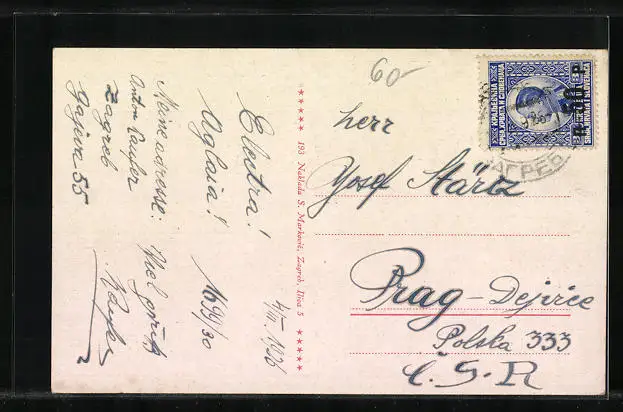 60-
4/III. 1926
Electra!
Oglaia!
1699/30
Meine adresse:
Anton Laufer
Zagreb
Gajeva 55
Viel grüße
Laufer
193 Naklada S. Marković, Zagreb, Ilica 5
Herr
Josef Stärtz
Prag-Dejvice
Polska 333
Č.S.R
КРАЉЕВИНА
СРБА, ХРВАТА И СЛОВЕНАЦА
50 p
ЗАГРЕБ